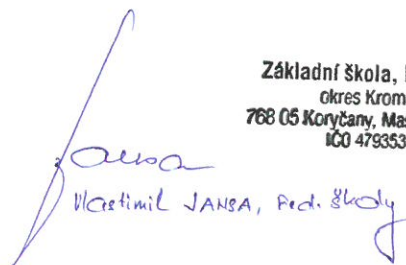 Základní škola,
okres Krom
768 05 Koryčany, Mas
IČO 479353
Jansa
Vlastimil JANSA, řed. školy